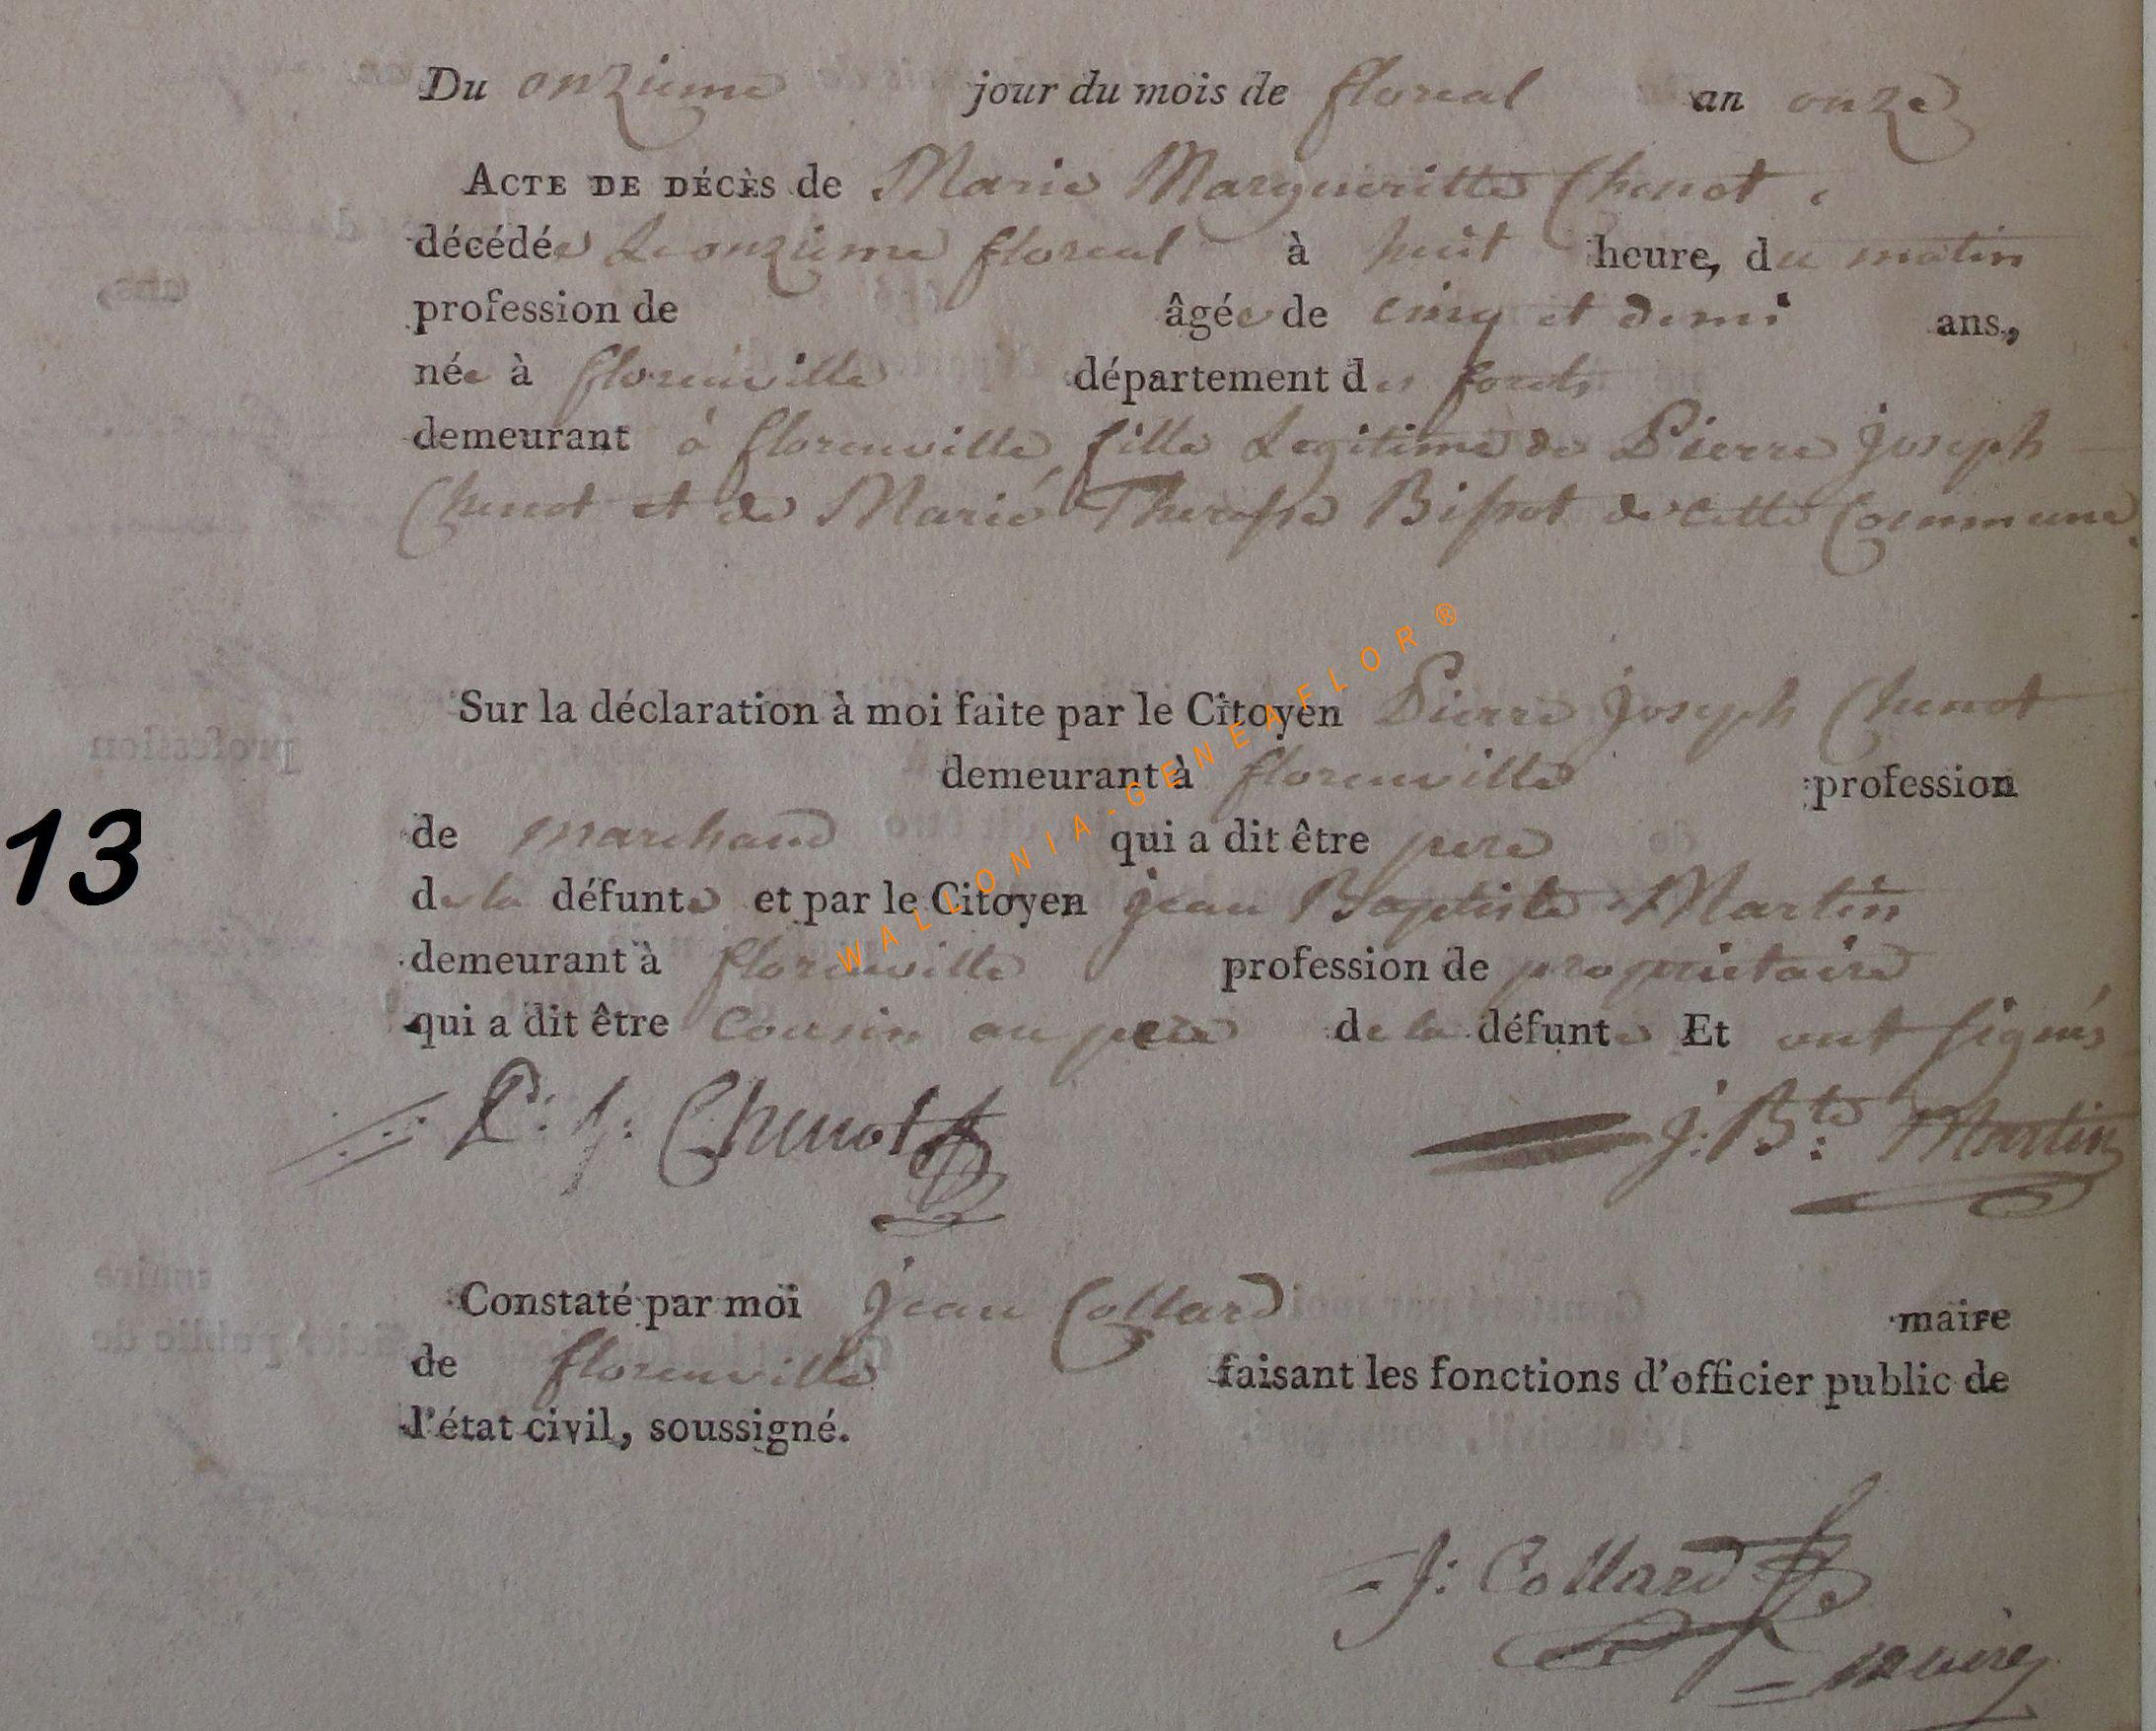 Du onzieme jour du mois de floreal an onze
ACTE DE DÉCÈS de Marie Margueritte Chenot,
décédée Le onzieme floreal à huit heure, du matin
profession de âgée de cinq et demi ans,
née à florenville département des forets
demeurant à florenville, fille Legitime de Pierre joseph
Chenot et de Marie Therese Bissot de cette Commune.
Sur la déclaration à moi faite par le Citoyen Pierre joseph Chenot
demeurant à florenville profession
de marchand qui a dit être pere
13
de la défunte et par le Citoyen jean Baptiste Martin
demeurant à florenville profession de proprietaire
qui a dit être Cousin au pere de la défunte Et ont signés
P: j: Chenot J: Bte: Martin
Constaté par moi jean Collard maire
de florenville faisant les fonctions d'officier public de
l'état civil, soussigné.
J: Collard
maire
WALLONIA-GENEAFLOR ®